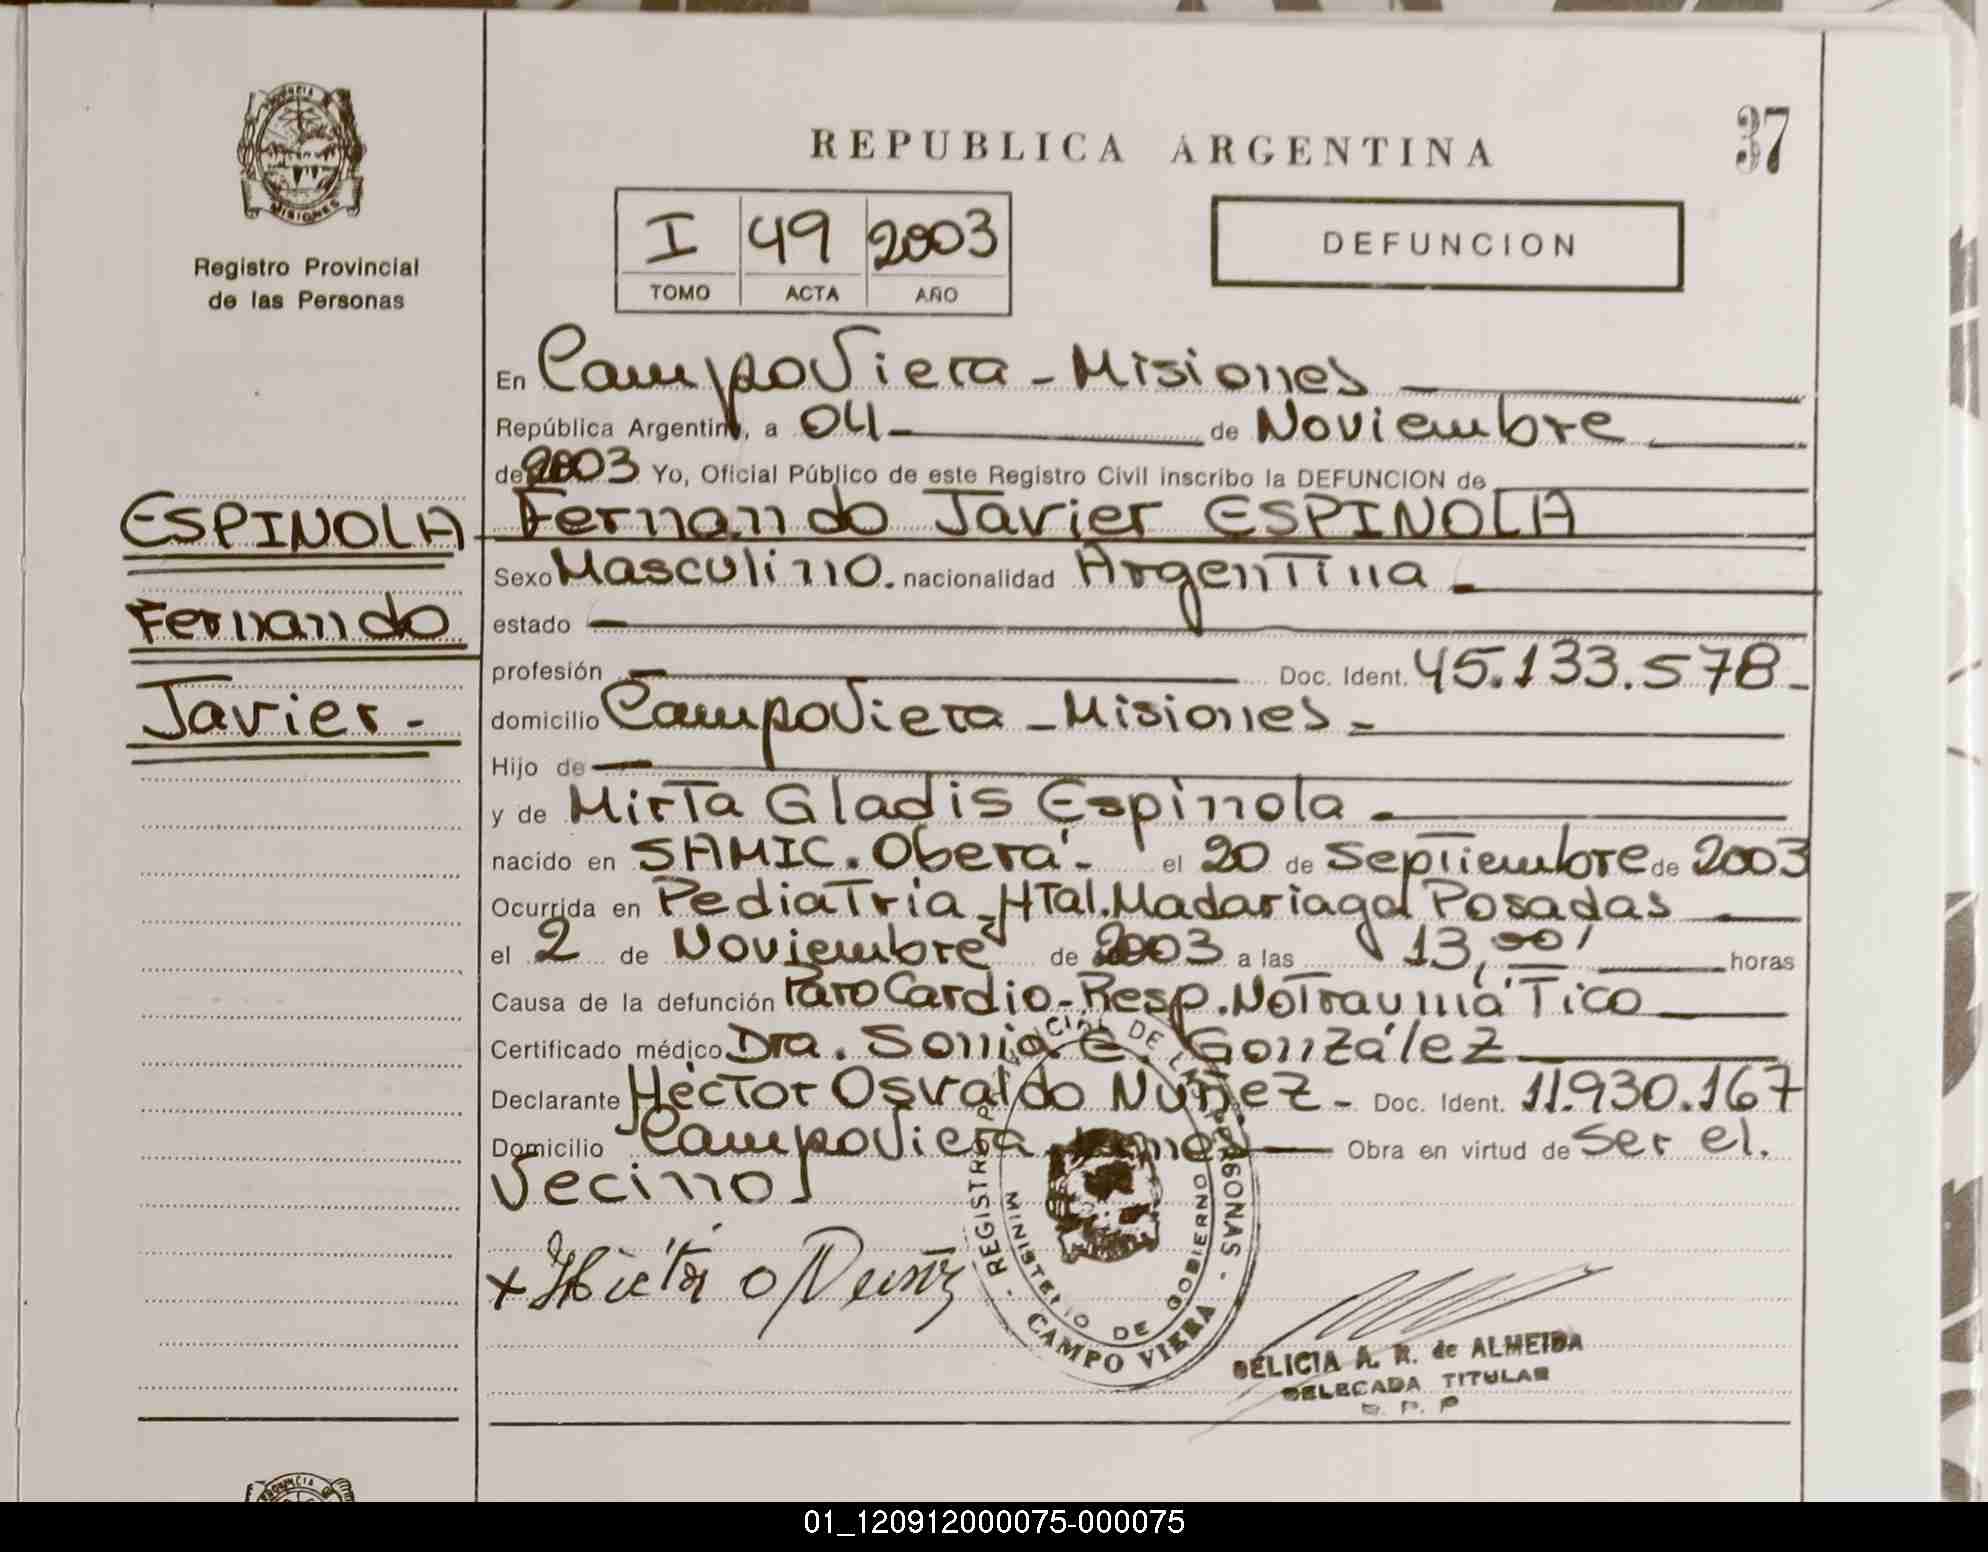 PROVINCIA
MISIONES
Registro Provincial
de las Personas
ESPINOLA
Fernando
Javier -
REPUBLICA ARGENTINA
37
I 49 2003
TOMO ACTA AÑO
DEFUNCION
En Campo Viera - Misiones
República Argentina, a 04 de Noviembre
de 2003 Yo, Oficial Público de este Registro Civil inscribo la DEFUNCION de
Fernando Javier ESPINOLA
Sexo Masculino. nacionalidad Argentina
estado
profesión Doc. Ident. 45.133.578-
domicilio Campo Viera - Misiones -
Hijo de
y de Mirta Gladis Espinola
nacido en SAMIC. Oberá - el 20 de Septiembre de 2003
Ocurrida en Pediatria - Htal. Madariaga Posadas
el 2 de Noviembre de 2003 a las 13,00 horas
Causa de la defunción Paro Cardio-Resp. No Traumático
Certificado médico Dra. Sonia E. González
Declarante Héctor Osvaldo Nuñez - Doc. Ident. 11.930.167
Domicilio Campo Viera Obra en virtud de ser el.
Vecino
REGISTRO PROVINCIAL DE LAS PERSONAS - CAMPO VIERA -
MINISTERIO DE GOBIERNO
DELICIA A. R. de ALMEIDA
DELEGADA TITULAR
R. P. P
PROVINCIA
01_120912000075-000075